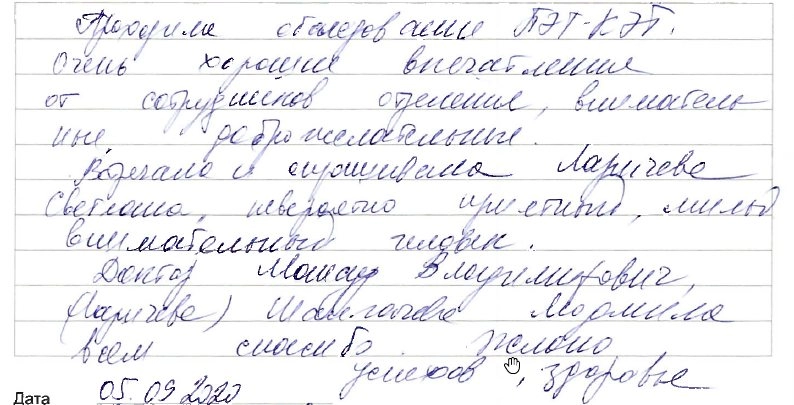 Проходила обследование ПЭТ-КЭТ.
Очень хорошие впечатления
от сотрудников отделения, вниматель
ные, доброжелательные.
Встречала и спрашивала Ларичева
Светлана, невероятно приятный, милый
внимательный человек.
Доктор Владимирович,
(Ларичева) Людмила
всем спасибо. Желаю
успехов, здоровье
Дата 05.09 2020